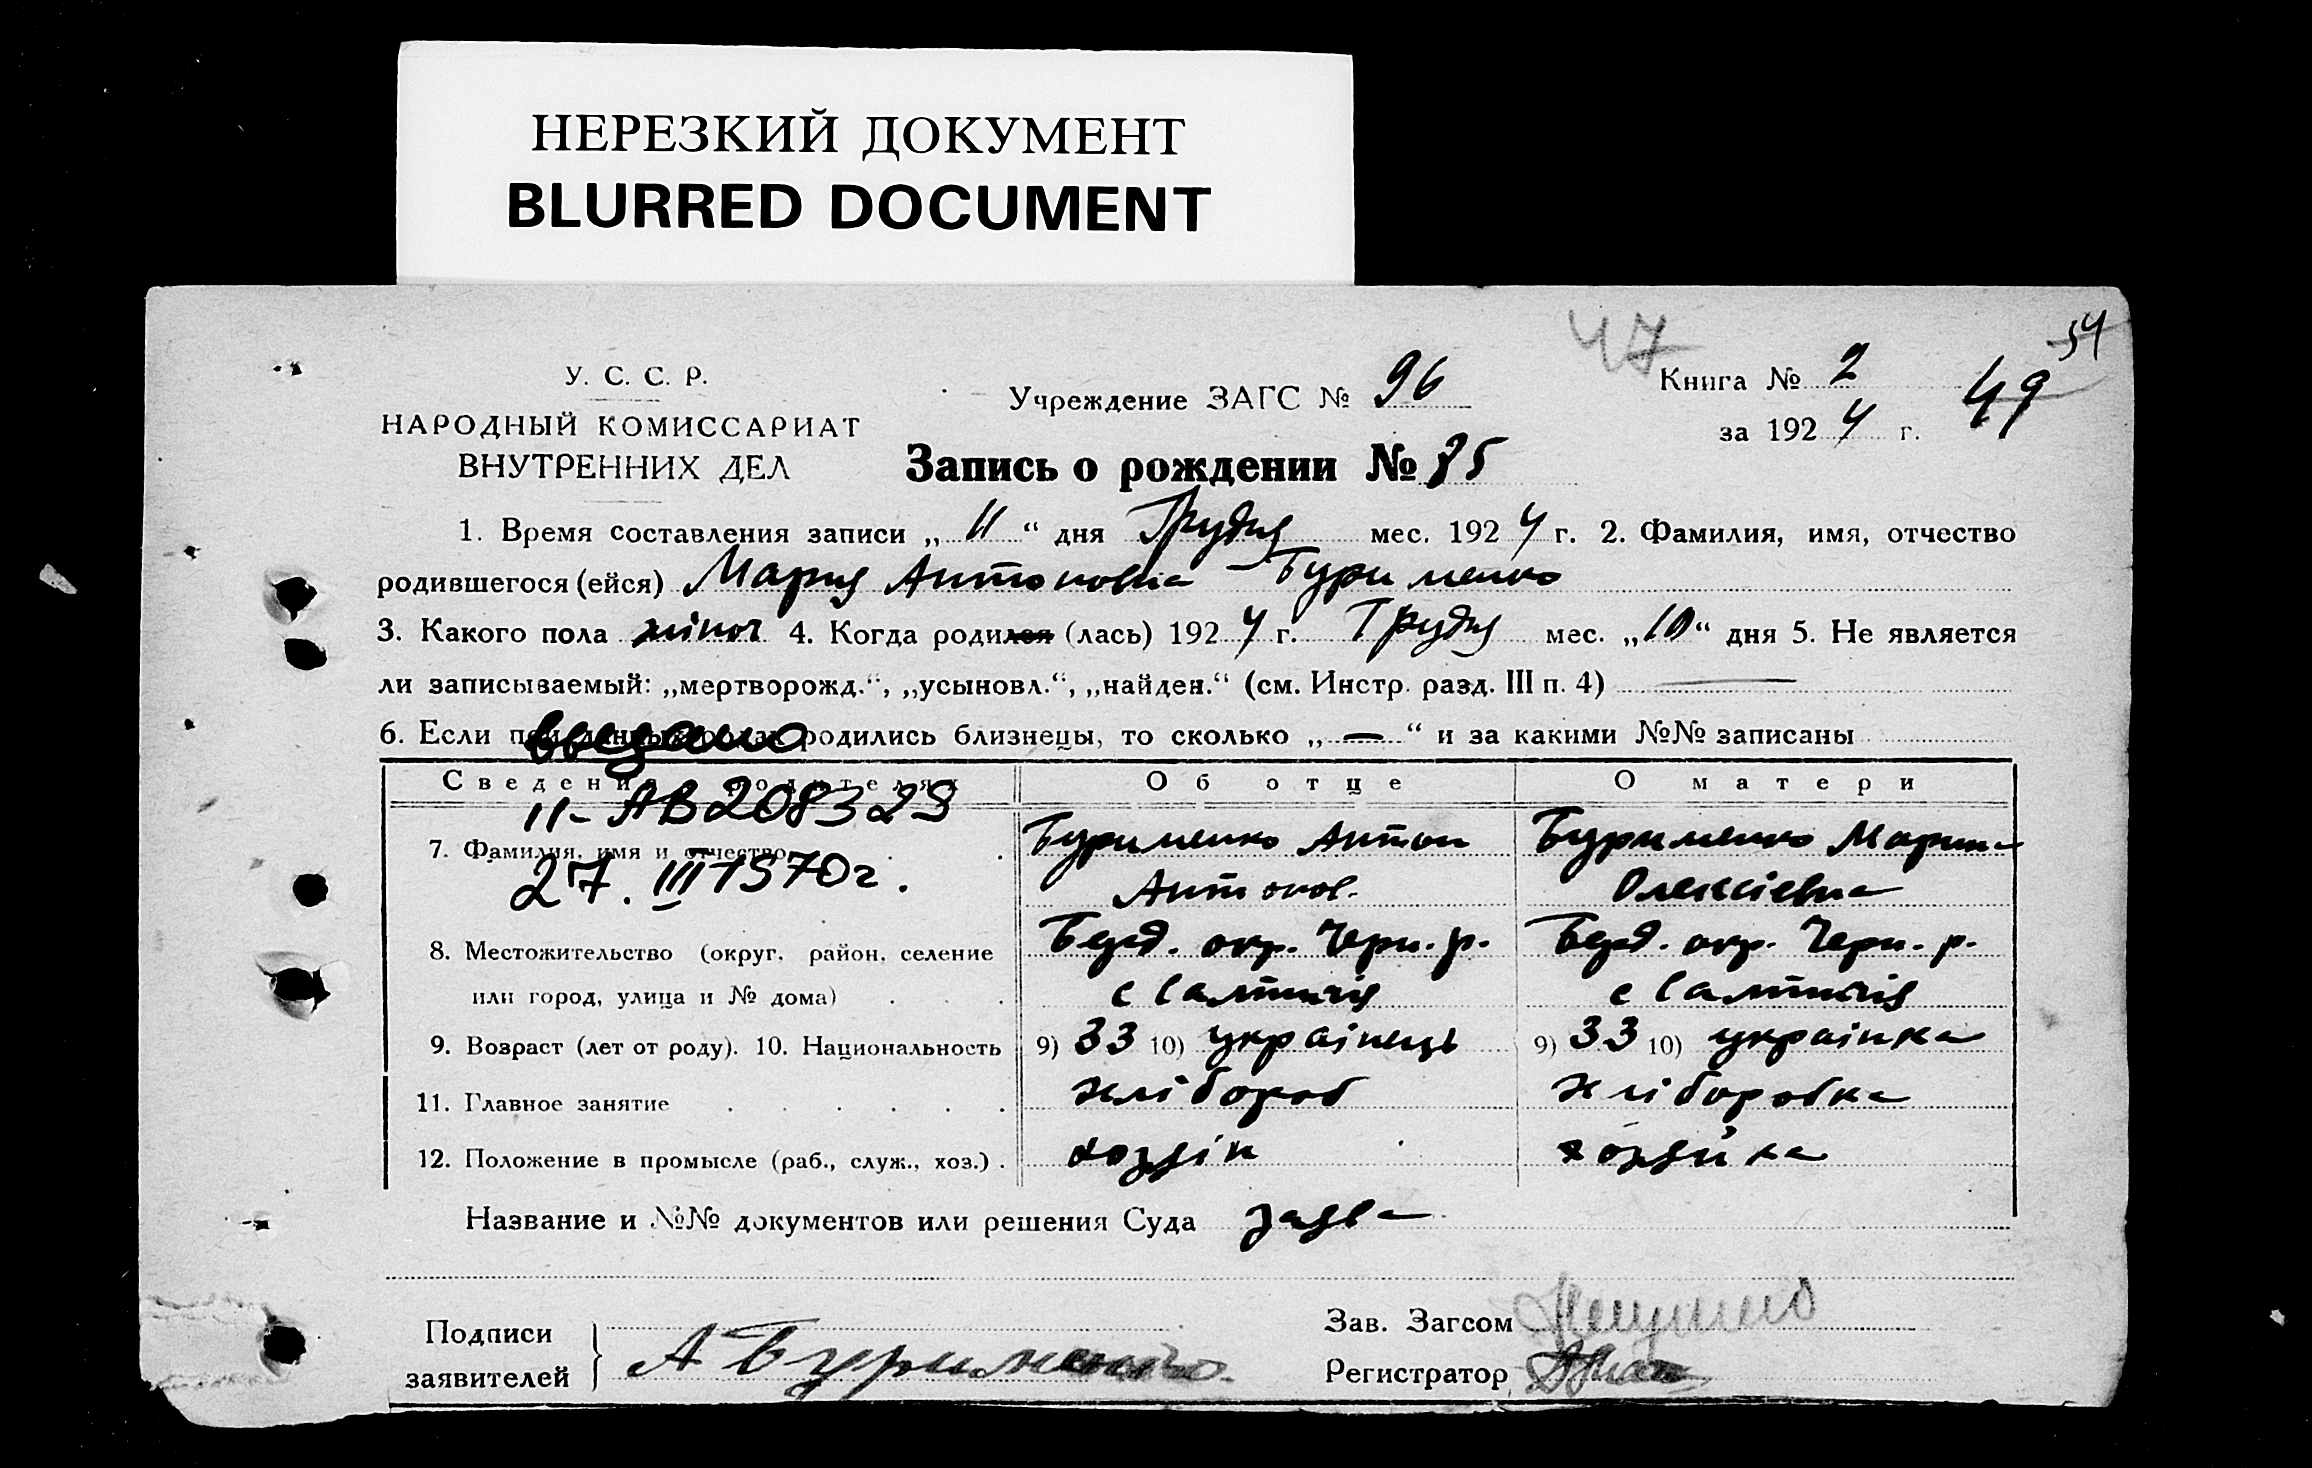 НЕРЕЗКИЙ ДОКУМЕНТ
BLURRED DOCUMENT
47
54
У. С. С. Р.
НАРОДНЫЙ КОМИССАРИАТ
ВНУТРЕННИХ ДЕЛ
Учреждение ЗАГС № 96
Книга № 2
49
за 1924 г.
Запись о рождении № 85
1. Время составления записи „ 11 “ дня Грудня мес. 1924 г. 2. Фамилия, имя, отчество
родившегося (ейся) Мария Антоновна Бурименко
3. Какого пола жіноч 4. Когда родился (лась) 1924 г. Грудня мес. „10“ дня 5. Не является
ли записываемый: „мертворожд.“, „усыновл.“, „найден.“ (см. Инстр. разд. III п. 4)
6. Если при данных родах родились близнецы, то сколько „ — “ и за какими №№ записаны
Сведения о родителях
Об отце
О матери
II-АВ 208329
27. III 1970г.
7. Фамилия, имя и отчество
Бурименко Антон
Антонов.
Бурименко Марина
Олексіевна
8. Местожительство (округ, район, селение
или город, улица и № дома)
Берд. окр. Черн. р.
с Салтичія
Берд. окр. Черн. р.
с Салтичія
9. Возраст (лет от роду). 10. Национальность
9) 33 10) українець
9) 33 10) українка
11. Главное занятие
хлібороб
хліборобка
12. Положение в промысле (раб., служ., хоз.) .
хозяін
хозяйка
Название и №№ документов или решения Суда заява
Подписи
заявителей
А Бурименко
Зав. Загсом
Регистратор